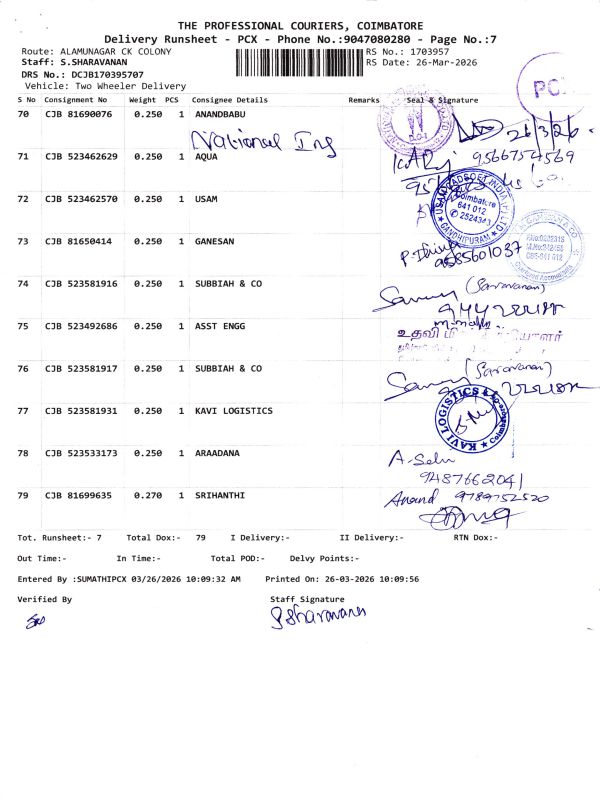 THE PROFESSIONAL COURIERS, COIMBATORE
Delivery Runsheet - PCX - Phone No.:9047080280 - Page No.:7
Route: ALAMUNAGAR CK COLONY
Staff: S.SHARAVANAN
DRS No.: DCJB170395707
Vehicle: Two Wheeler Delivery
RS No.: 1703957
RS Date: 26-Mar-2026
PC
S No Consignment No Weight PCS Consignee Details Remarks Seal & Signature
70 CJB 81690076 0.250 1 ANANDBABU
26/3/26
National Ing
71 CJB 523462629 0.250 1 AQUA
9566754569
72 CJB 523462570 0.250 1 USAM
Coimbatore
641 012
2524343
GANDHIPURAM
73 CJB 81650414 0.250 1 GANESAN
9585601037
74 CJB 523581916 0.250 1 SUBBIAH & CO
(Saravanan)
75 CJB 523492686 0.250 1 ASST ENGG
உதவி
76 CJB 523581917 0.250 1 SUBBIAH & CO
(Saravanan)
77 CJB 523581931 0.250 1 KAVI LOGISTICS
KAVI LOGISTICS
Coimbatore
78 CJB 523533173 0.250 1 ARAADANA
A-Selv
9487662041
79 CJB 81699635 0.270 1 SRIHANTHI
Anand 9789752520
Tot. Runsheet:- 7 Total Dox:- 79 I Delivery:- II Delivery:- RTN Dox:-
Out Time:- In Time:- Total POD:- Delvy Points:-
Entered By :SUMATHIPCX 03/26/2026 10:09:32 AM Printed On: 26-03-2026 10:09:56
Verified By Staff Signature
Ssharavanan